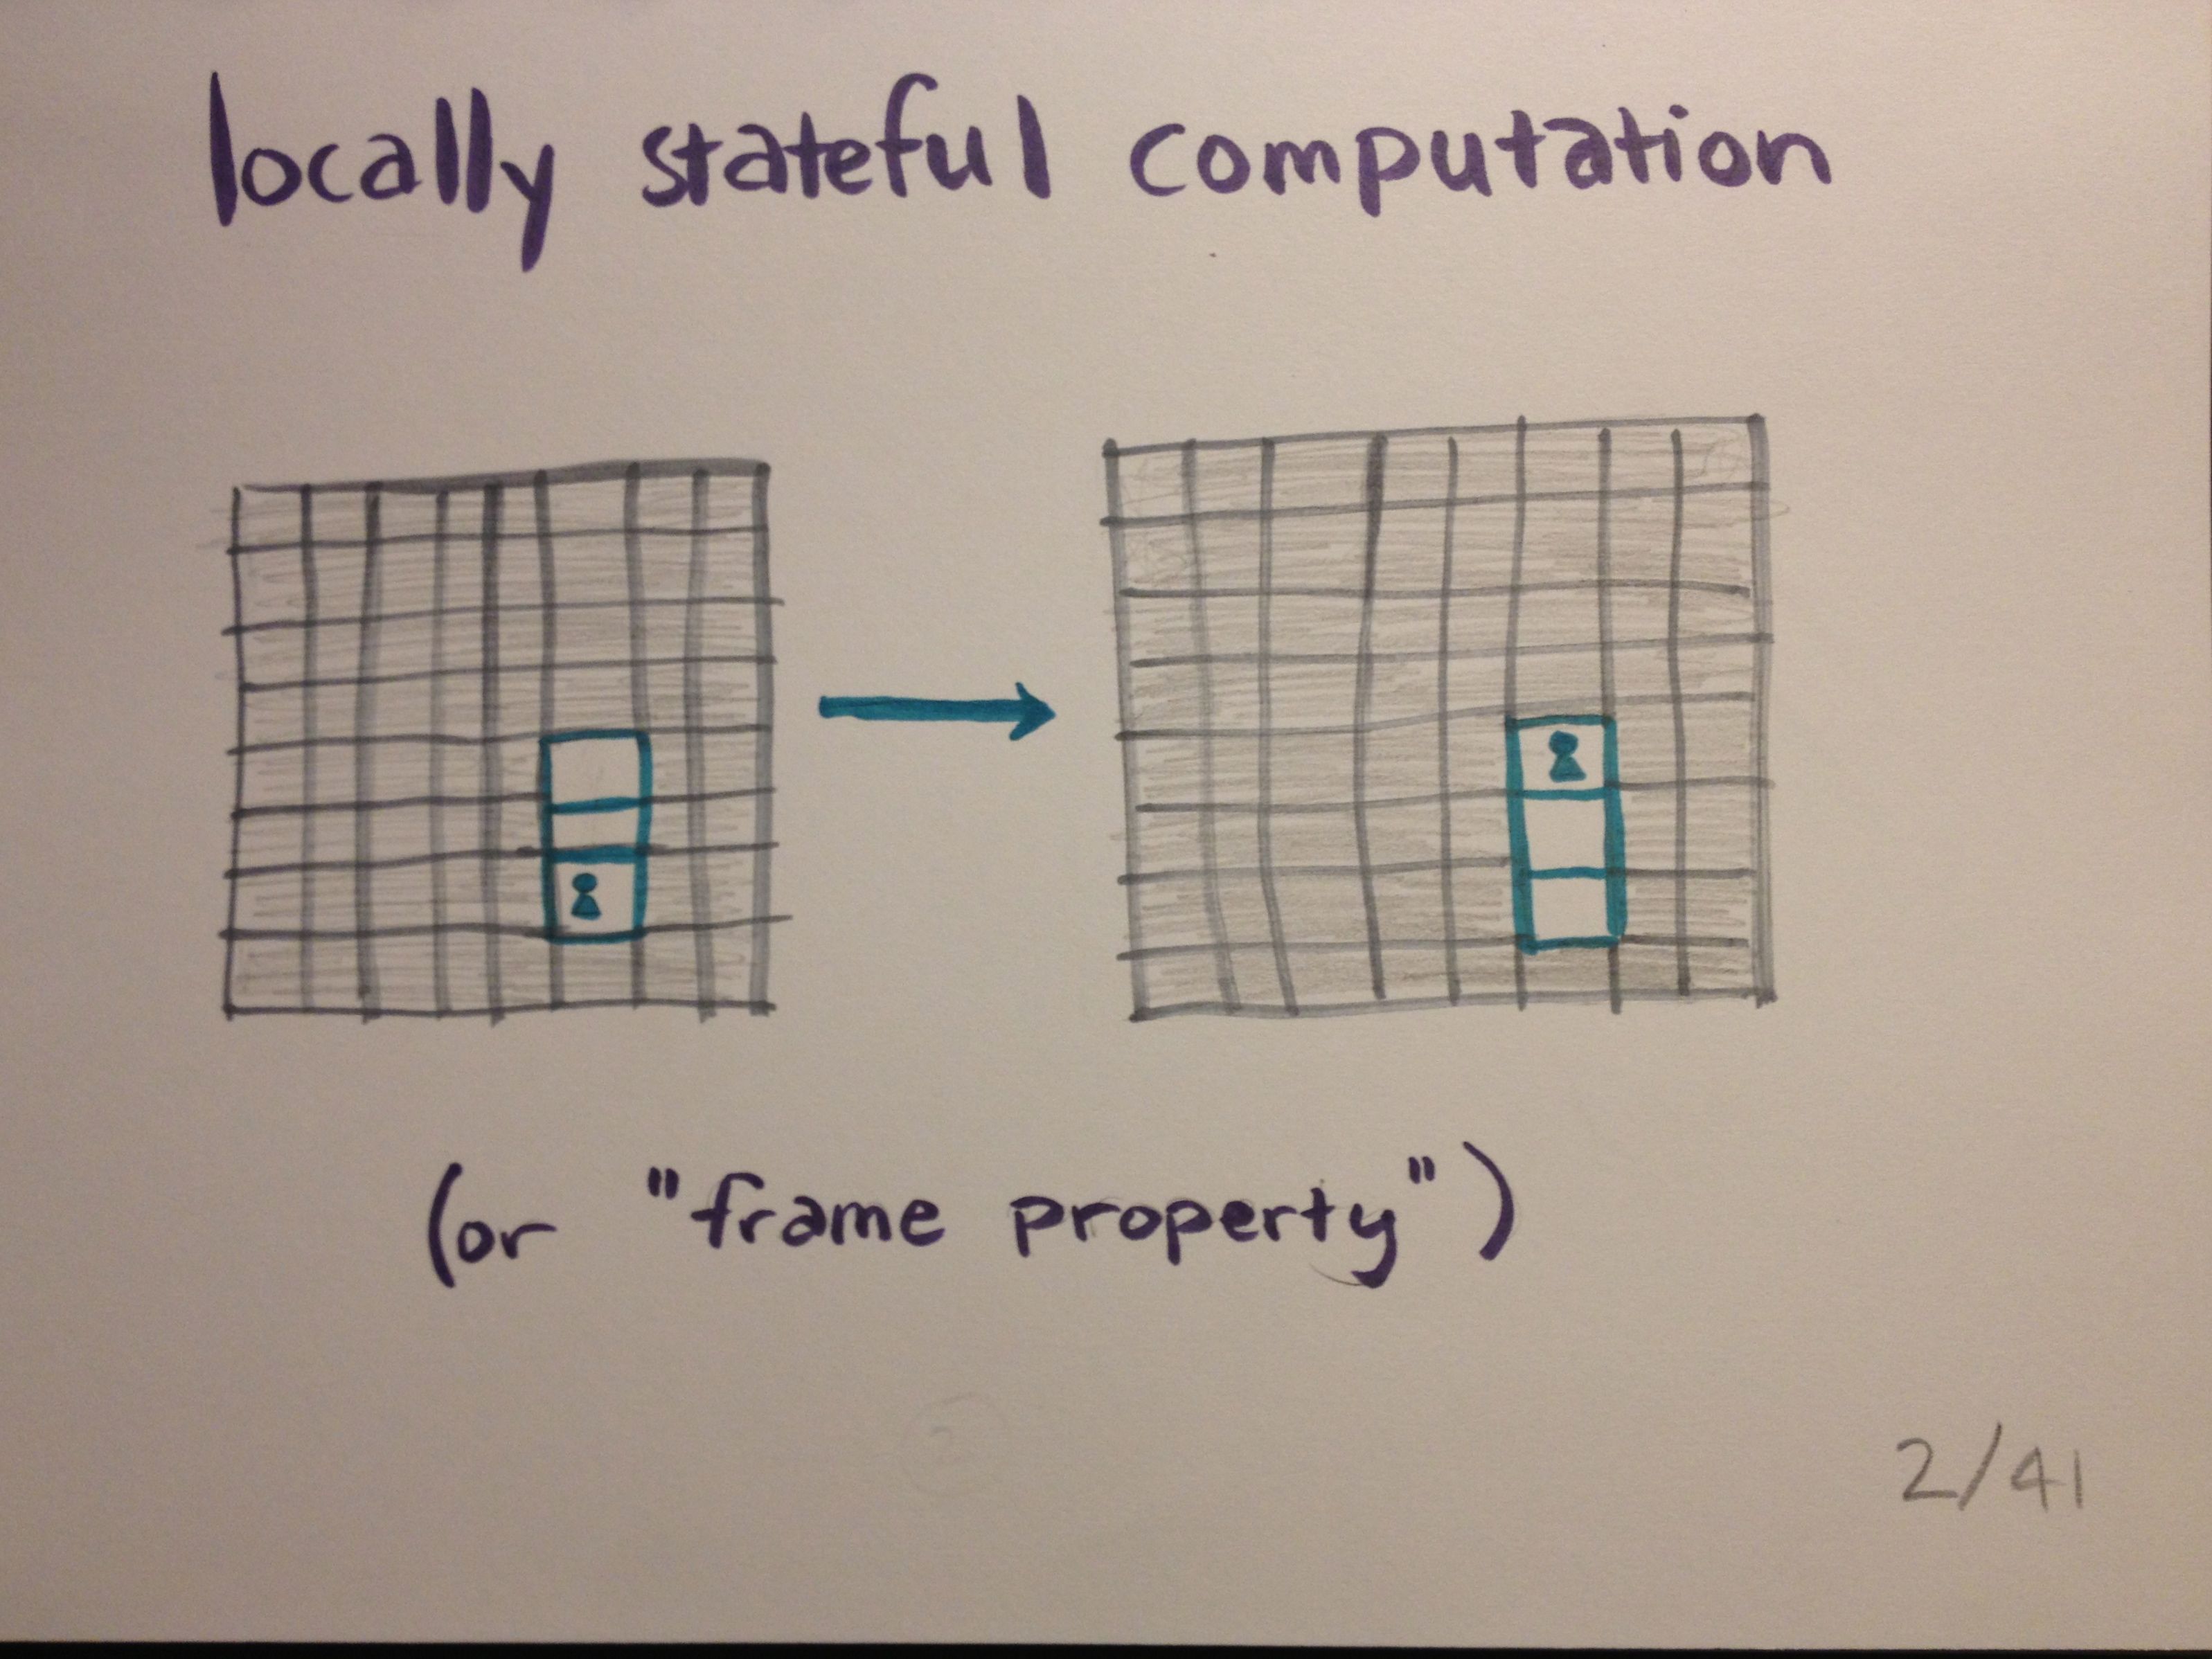 locally stateful computation
(or "frame property")
2/41